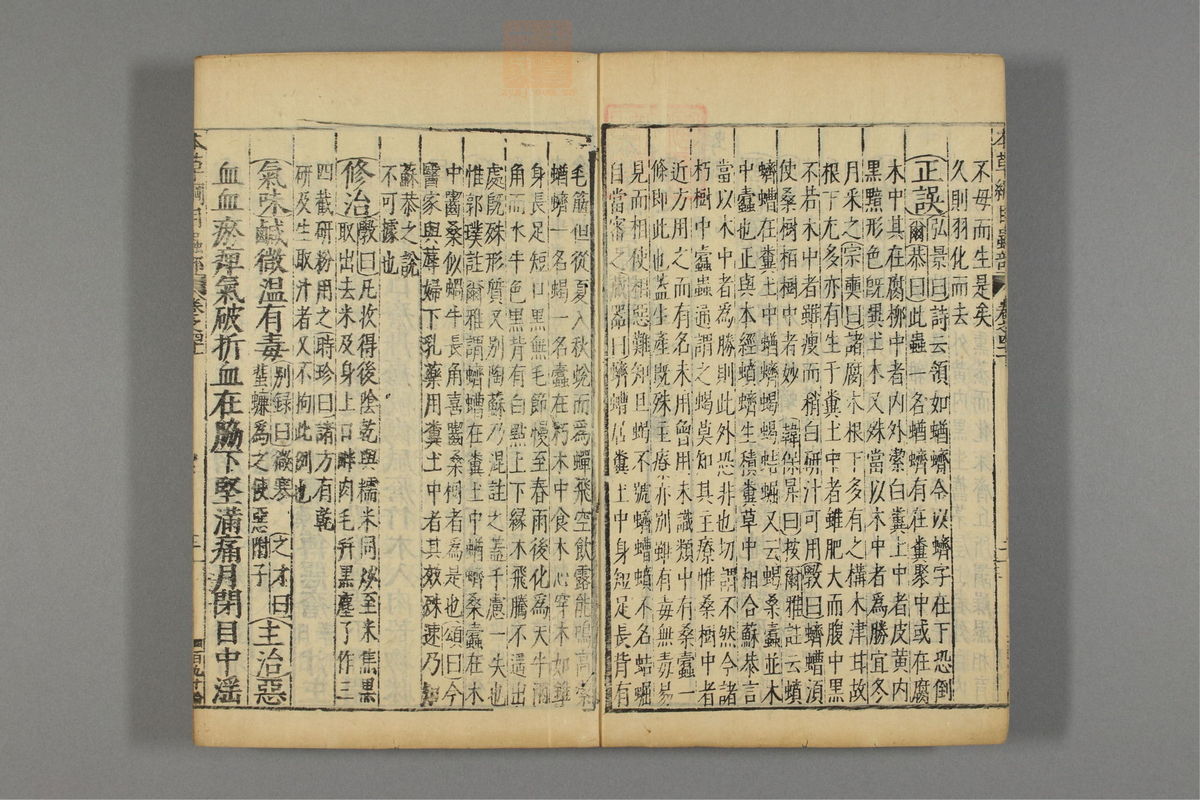 本草綱目蟲部 卷之四十一
不母而生是矣
久則羽化而去
正誤弘景曰詩云領如蝤蠐今以蠐字在下恐倒
爾恭曰此蟲一名蝤蠐有在糞聚中或在腐
木中其在腐柳中者內外潔白糞土中者皮黃內
黑黯形色既異土木又殊當以木中者爲勝宜冬
月采之宗奭曰諸腐木根下多有之構木津甘故
根下尤多亦有生于糞土中者雖肥大而腹中黑
不若木中者雖瘦而稍白研汁可用斅曰蠐螬湏
使桑樹柏樹中者妙韓保昇曰按爾雅註云蟦
蠐螬在糞土中蝤蠐蝎蛣𧌑又云蝎桑蠹並木
中蠹也正與本經蟦蠐生積糞草中相合蘇恭言
當以木中者為勝則此外恐非也切謂不然今諸
朽樹中蠹蟲通謂之蝎莫知其主療惟桑樹中者
近方用之而有名未用曾用未識類中有桑蠹一
條即此也蓋生產既殊主療亦別雖有毒無毒易
見而相使相惡難知且蝎不號蠐螬蟦不名蛣𧌑
自當審之藏器曰蠐螬居糞土中身短足長背有
毛筋但從夏入秋蛻而爲蟬飛空飲露能鳴高
蝤蠐一名蝎一名蠹在朽木中食木心穿木如錐
身長足短口黑無毛節慢至春雨後化爲天牛兩
角而水牛色黑背有白點上下緣木飛騰不遥出
處既殊形質又別陶蘇乃混註之蓋千慮一失也
惟郭璞註爾雅謂蠐螬在糞土中蝤蠐桑蠹在木
中齧桑似蝸牛長角喜齧桑樹者爲是也頌曰今
醫家與蓐婦下乳藥用糞土中者其效殊速乃知
蘇恭之說
不可據也
修治斅曰凡收得後陰乾與糯米同炒至米焦黑
取出去米及身上口畔肉毛并黑塵了作三
四截研粉用之時珍曰諸方有乾
研及生取汁者又不拘此例也
氣味鹹微溫有毒別錄曰微寒之才曰
蜚蠊爲之使惡附子主治惡
血血瘀痺氣破折血在脇下堅滿痛月閉目中滛
本草綱目蟲部 卷之四十一